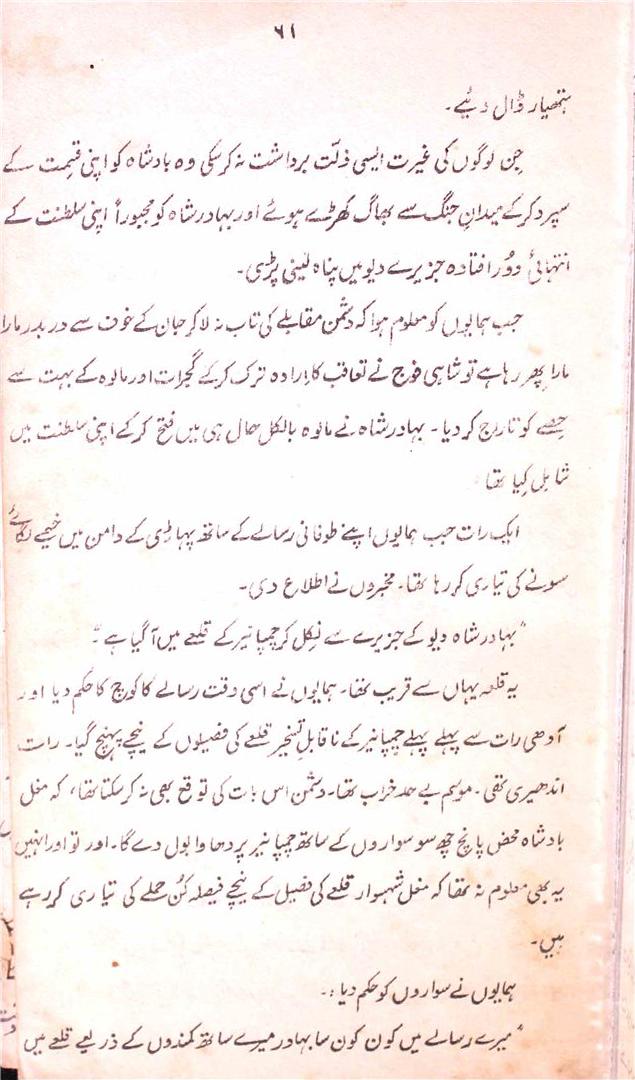 ۶۱
ہتھیار ڈال دئیے۔
جن لوگوں کی غیرت ایسی ذلّت برداشت نہ کرسکی وہ بادشاہ کو اپنی قسمت کے
سپرد کرکے میدانِ جنگ سے بھاگ کھڑے ہوئے اور بہادر شاہ کو مجبوراً اپنی سلطنت کے
انتہائی دور افتادہ جزیرے دیو میں پناہ لینی پڑی۔
جب ہمایوں کو معلوم ہوا کہ دشمن مقابلے کی تاب نہ لاکر جان کے خوف سے در بدر مارا
مارا پھر رہا ہے تو شاہی فوج نے تعاقب کا ارادہ ترک کرکے گجرات اور مالوہ کے بہت سے
حصے کو تاراج کر دیا۔ بہادر شاہ نے مالوہ بالکل حال ہی میں فتح کرکے اپنی سلطنت میں
شامل کیا تھا
ایک رات جب ہمایوں اپنے طوفانی رسالے کے ساتھ پہاڑی کے دامن میں خیمے لگائے
سونے کی تیاری کر رہا تھا۔ مخبروں نے اطلاع دی۔
"بہادر شاہ دیو کے جزیرے سے نکل کر چمپانیر کے قلعے میں آگیا ہے۔"
یہ قلعہ یہاں سے قریب تھا۔ ہمایوں نے اسی وقت رسالے کا کوچ کا حکم دیا اور
آدھی رات سے پہلے پہلے چمپانیر کے ناقابلِ تسخیر قلعے کی فصیلوں کے نیچے پہنچ گیا۔ رات
اندھیری تھی۔ موسم بے حد خراب تھا۔ دشمن اس بات کی توقع بھی نہ کرسکتا تھا، کہ مغل
بادشاہ محض پانچ چھ سو سواروں کے ساتھ چمپانیر پر دھاوا بول دے گا۔ اور تو اور انہیں
یہ بھی معلوم نہ تھا کہ مغل شہسوار قلعے کی فصیل کے نیچے فیصلہ کُن حملے کی تیاری کررہے
ہیں۔
ہمایوں نے سواروں کو حکم دیا:۔
"میرے رسالے میں کون کون سا بہادر میرے ساتھ کمندوں کے ذریعے قلعے میں